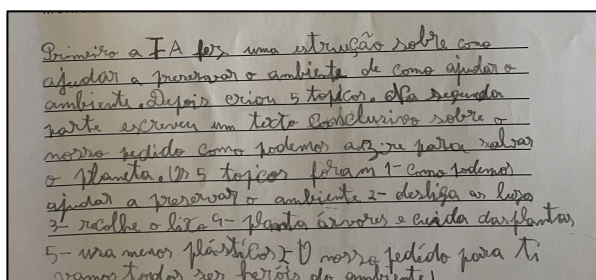 Primeiro a IA fez uma estrução sobre como
ajudar a preservar o ambiente de como ajudar o
ambiente. Depois criou 5 topicos. Na segunda
parte escreveu um texto conclusivo sobre o
nosso pedido como podemos para salvar
o planeta. Os 5 topicos foram 1- como podemos
ajudar a preservar o ambiente 2- desliga as luzes
3- recolhe o lixo 4- planta árvores e cuida das plantas
5- usa menos plásticos - O nosso pedido para ti
vamos todos ser heróis do ambiente!